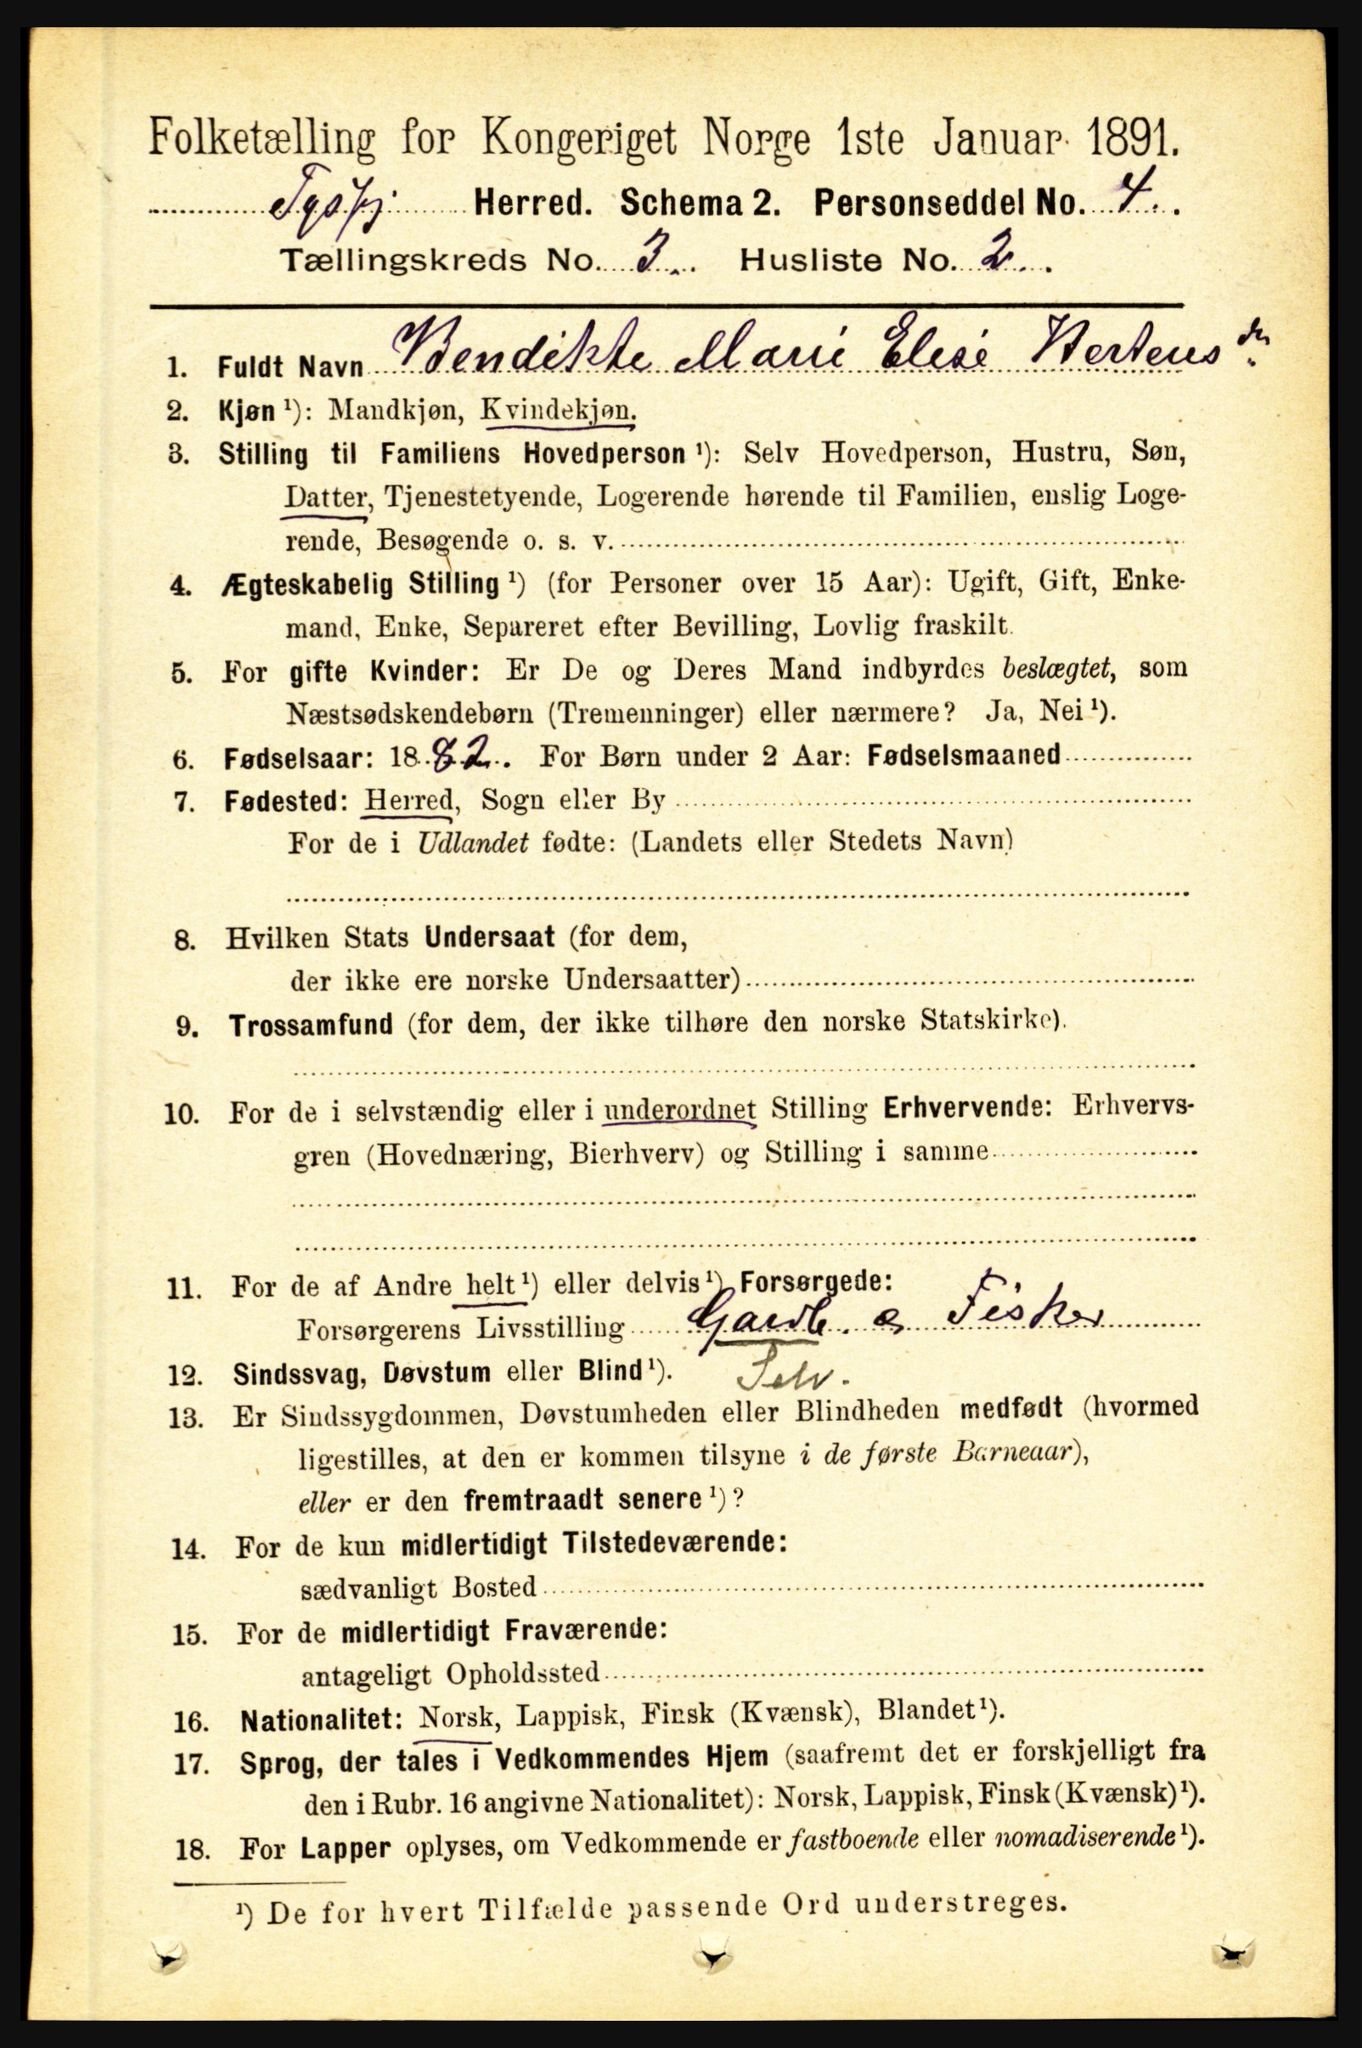 Folketælling for Kongeriget Norge 1ste Januar 1891.
Tysfj Herred. Schema 2. Personseddel No. 4.
Tællingskreds No. 3. Husliste No. 2.
1. Fuldt Navn Bendikte Marie Elise Hertensdtr
2. Kjøn ¹): Mandkjøn, Kvindekjøn.
3. Stilling til Familiens Hovedperson ¹): Selv Hovedperson, Hustru, Søn,
Datter, Tjenestetyende, Logerende hørende til Familien, enslig Loge-
rende, Besøgende o. s. v.
4. Ægteskabelig Stilling ¹) (for Personer over 15 Aar): Ugift, Gift, Enke-
mand, Enke, Separeret efter Bevilling, Lovlig fraskilt.
5. For gifte Kvinder: Er De og Deres Mand indbyrdes beslægtet, som
Næstsødskendebørn (Tremenninger) eller nærmere? Ja, Nei ¹).
6. Fødselsaar: 1882. For Børn under 2 Aar: Fødselsmaaned
7. Fødested: Herred, Sogn eller By
For de i Udlandet fødte: (Landets eller Stedets Navn)
8. Hvilken Stats Undersaat (for dem,
der ikke ere norske Undersaatter)
9. Trossamfund (for dem, der ikke tilhøre den norske Statskirke).
10. For de i selvstændig eller i underordnet Stilling Erhvervende: Erhvervs-
gren (Hovednæring, Bierhverv) og Stilling i samme
11. For de af Andre helt ¹) eller delvis ¹) Forsørgede:
Forsørgerens Livsstilling Gaardb. & Fisker
12. Sindssvag, Døvstum eller Blind ¹). Selv.
13. Er Sindssygdommen, Døvstumheden eller Blindheden medfødt (hvormed
ligestilles, at den er kommen tilsyne i de første Barneaar),
eller er den fremtraadt senere ¹)?
14. For de kun midlertidigt Tilstedeværende:
sædvanligt Bosted
15. For de midlertidigt Fraværende:
antageligt Opholdssted
16. Nationalitet: Norsk, Lappisk, Finsk (Kvænsk), Blandet ¹).
17. Sprog, der tales i Vedkommendes Hjem (saafremt det er forskjelligt fra
den i Rubr. 16 angivne Nationalitet): Norsk, Lappisk, Finsk (Kvænsk) ¹).
18. For Lapper oplyses, om Vedkommende er fastboende eller nomadiserende ¹).
¹) De for hvert Tilfælde passende Ord understreges.